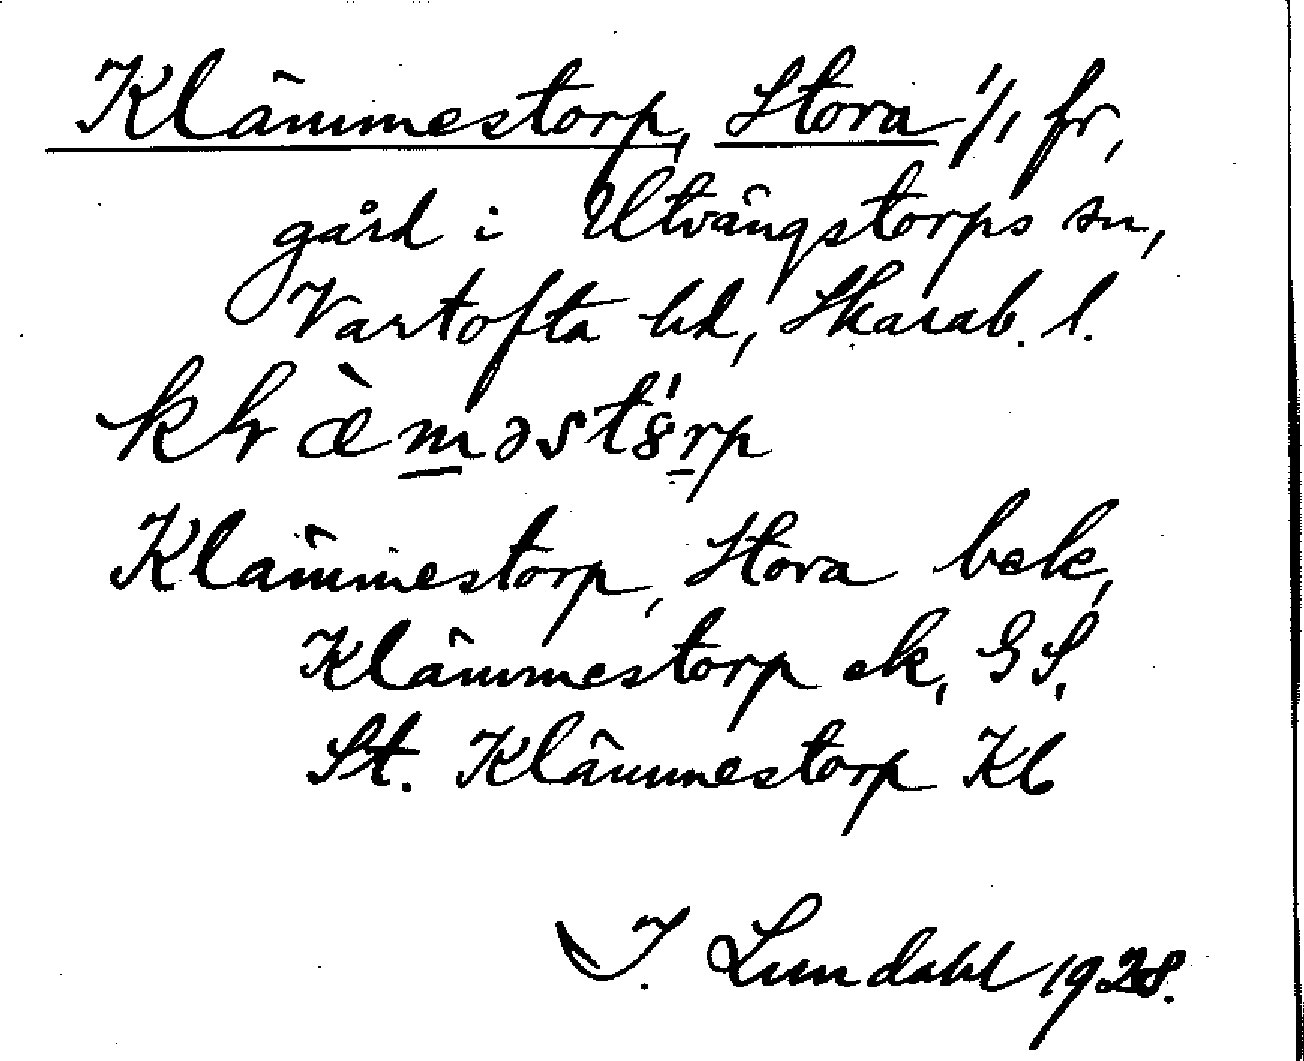 Klämmestorp, Stora 1/1 fr,
gård i Utvängstorps sn,
Vartofta hd, Skarab. l.
Klämmestorp, Stora bek,
Klämmestorp ek, GS,
St. Klämmestorp Kb
I. Lundahl 1928.